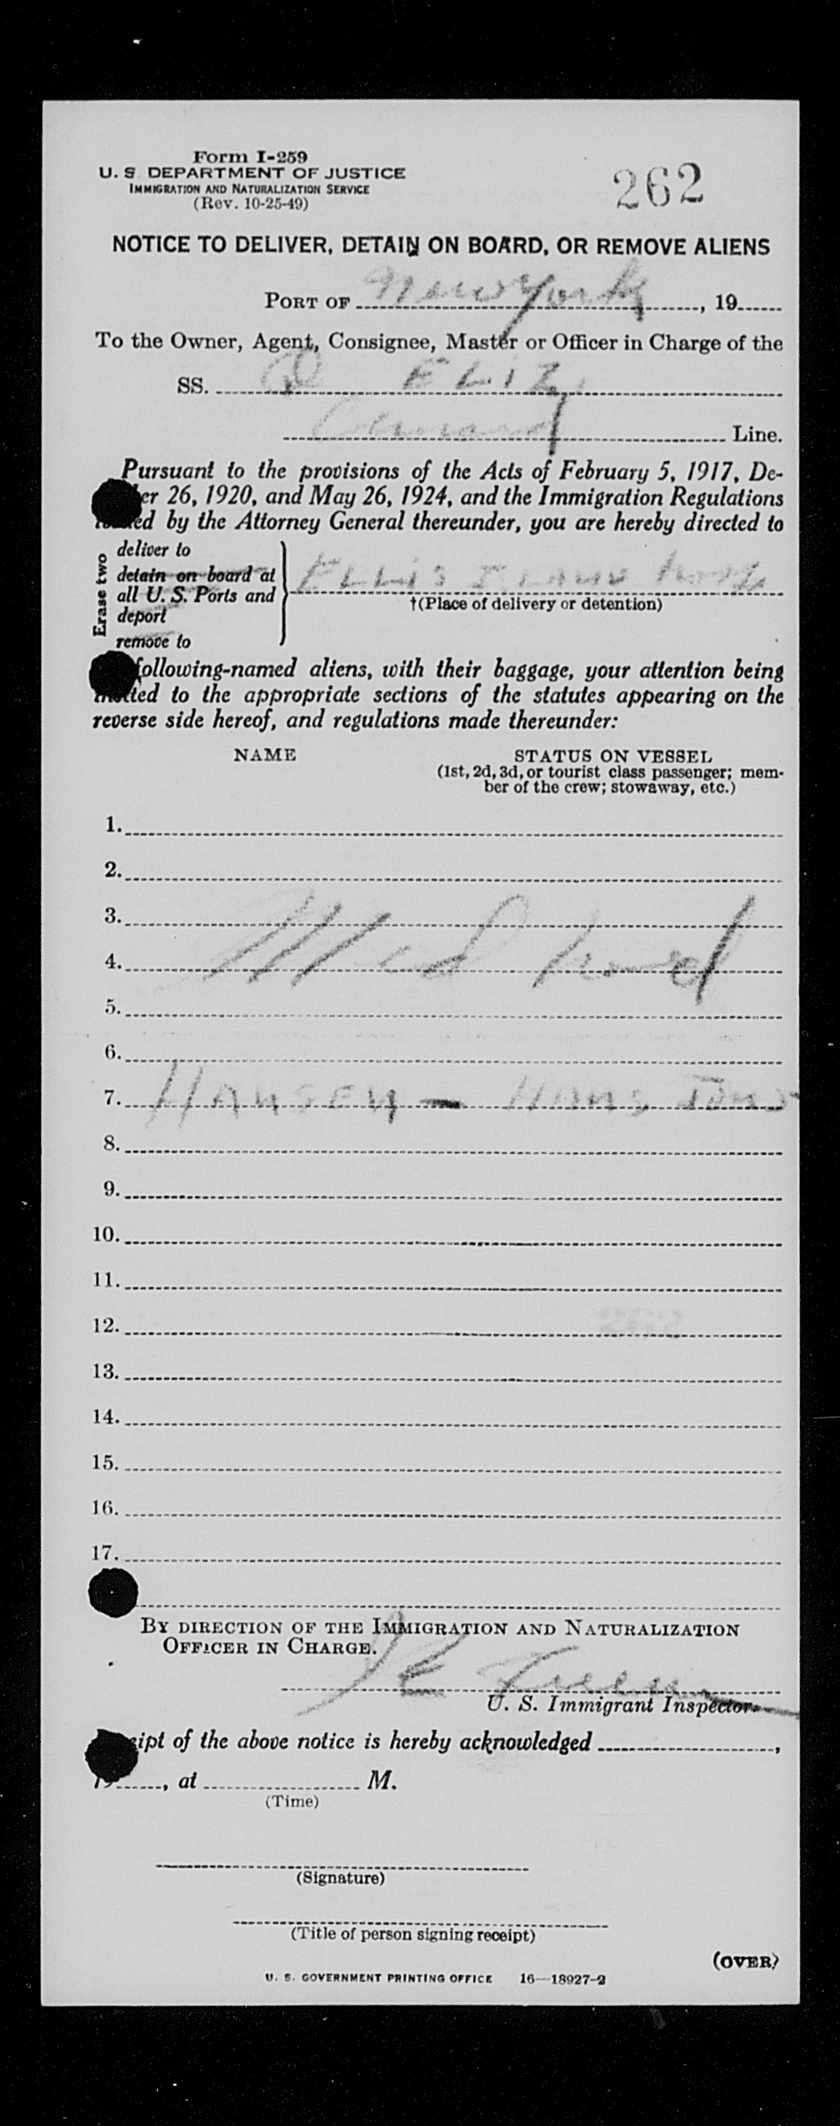 Form I-259
U. S. DEPARTMENT OF JUSTICE
IMMIGRATION AND NATURALIZATION SERVICE
(Rev. 10-25-49)
262
NOTICE TO DELIVER, DETAIN ON BOARD, OR REMOVE ALIENS
PORT OF New York, 19
To the Owner, Agent, Consignee, Master or Officer in Charge of the
SS. Q ELIZ
Cunard Line.
Pursuant to the provisions of the Acts of February 5, 1917, De-
er 26, 1920, and May 26, 1924, and the Immigration Regulations
ed by the Attorney General thereunder, you are hereby directed to
Erase two
deliver to
detain on board at
all U. S. Ports and
deport
remove to
ELLIS ISLAND
†(Place of delivery or detention)
following-named aliens, with their baggage, your attention being
ited to the appropriate sections of the statutes appearing on the
reverse side hereof, and regulations made thereunder:
NAME
STATUS ON VESSEL
(1st, 2d, 3d, or tourist class passenger; mem-
ber of the crew; stowaway, etc.)
1.
2.
3.
4. Med
5.
6.
7. HANSEN - HANS
8.
9.
10.
11.
12. 262
13.
14.
15.
16.
17.
BY DIRECTION OF THE IMMIGRATION AND NATURALIZATION
OFFICER IN CHARGE.
U. S. Immigrant Inspector.
ipt of the above notice is hereby acknowledged ,
19 , at M.
(Time)
(Signature)
(Title of person signing receipt)
(OVER)
U. S. GOVERNMENT PRINTING OFFICE 16—18927-2